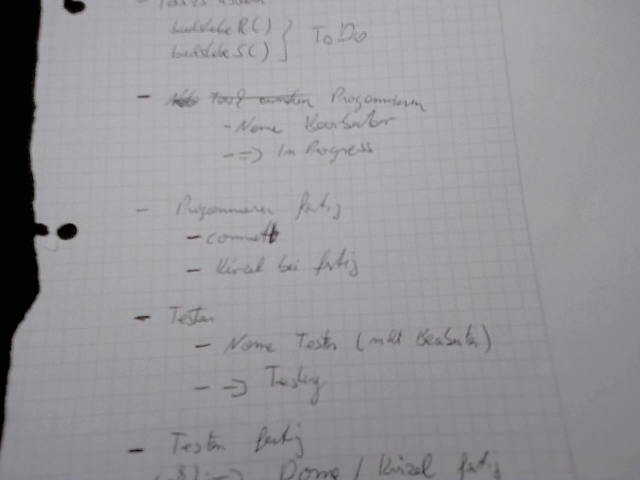 buchstabeR() } ToDo
buchstabeS()
- Programmieren
- Name Bearbeiter
- => In Progress
- Programmieren fertig
- commit
- Kürzel bei fertig
- Testen
- Name Tester (nicht Bearbeiter)
- => Testing
- Testen fertig
=> Done / Kürzel fertig